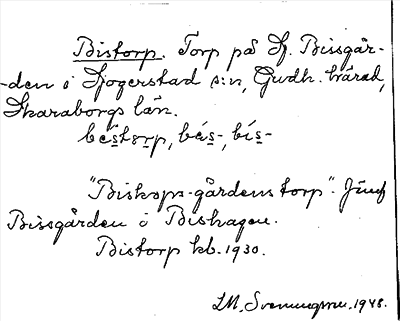 Bistorp. Torp på St. Bissgår-
-den i Sjogerstad s:n, Gudh. härad,
Skaraborgs län.
bèstɔrp, bès-, bìs-
"Biskops-gårdens torp". Jämf
Bissgården i Bishagen.
Bistorp kb. 1930.
LM. Svennungsson. 1948.